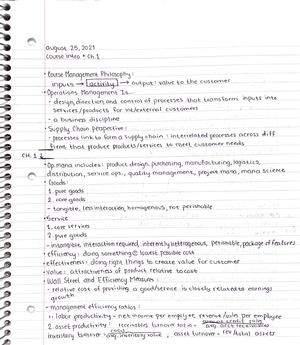 august 25, 2021
course intro + Ch.1
• Course Management Philosophy:
inputs → activity → output: value to the customer
• Operations Management Is
- design, direction and control of processes that transform inputs into
services/products for int/external customers
- a business discipline
• Supply Chain Perspective:
- processes link to form a supply chain: interrelated processes across diff
firms that produce products/services to meet customer needs
Ch. 1
• Op. mana includes: product design, purchasing, manufacturing, logistics,
distribution, service ops., quality management, project mana, mana science
• Goods:
1. pure goods
2. core goods
- tangible, less interaction, homogenous, not perishable
• Service
1. core services
2. pure goods
- intangible, interaction required, inherently heterogenous, perishable, package of features
• efficiency: doing something @ lowest possible cost
• effectiveness: doing right things to create value for customer
• value: attractiveness of product relative to cost
• Wall Street and Efficiency Measure:
- relative cost of providing a good/service is closely related to earnings
growth
- management efficiency ratios:
1. labor productivity - net income per employee, revenue/sales per employee
2. asset productivity: receivables turnover ratio = annual credit sales / avg. acct receivables
inventory turnover = / avg. inventory value ; asset turnover = rev / total assets